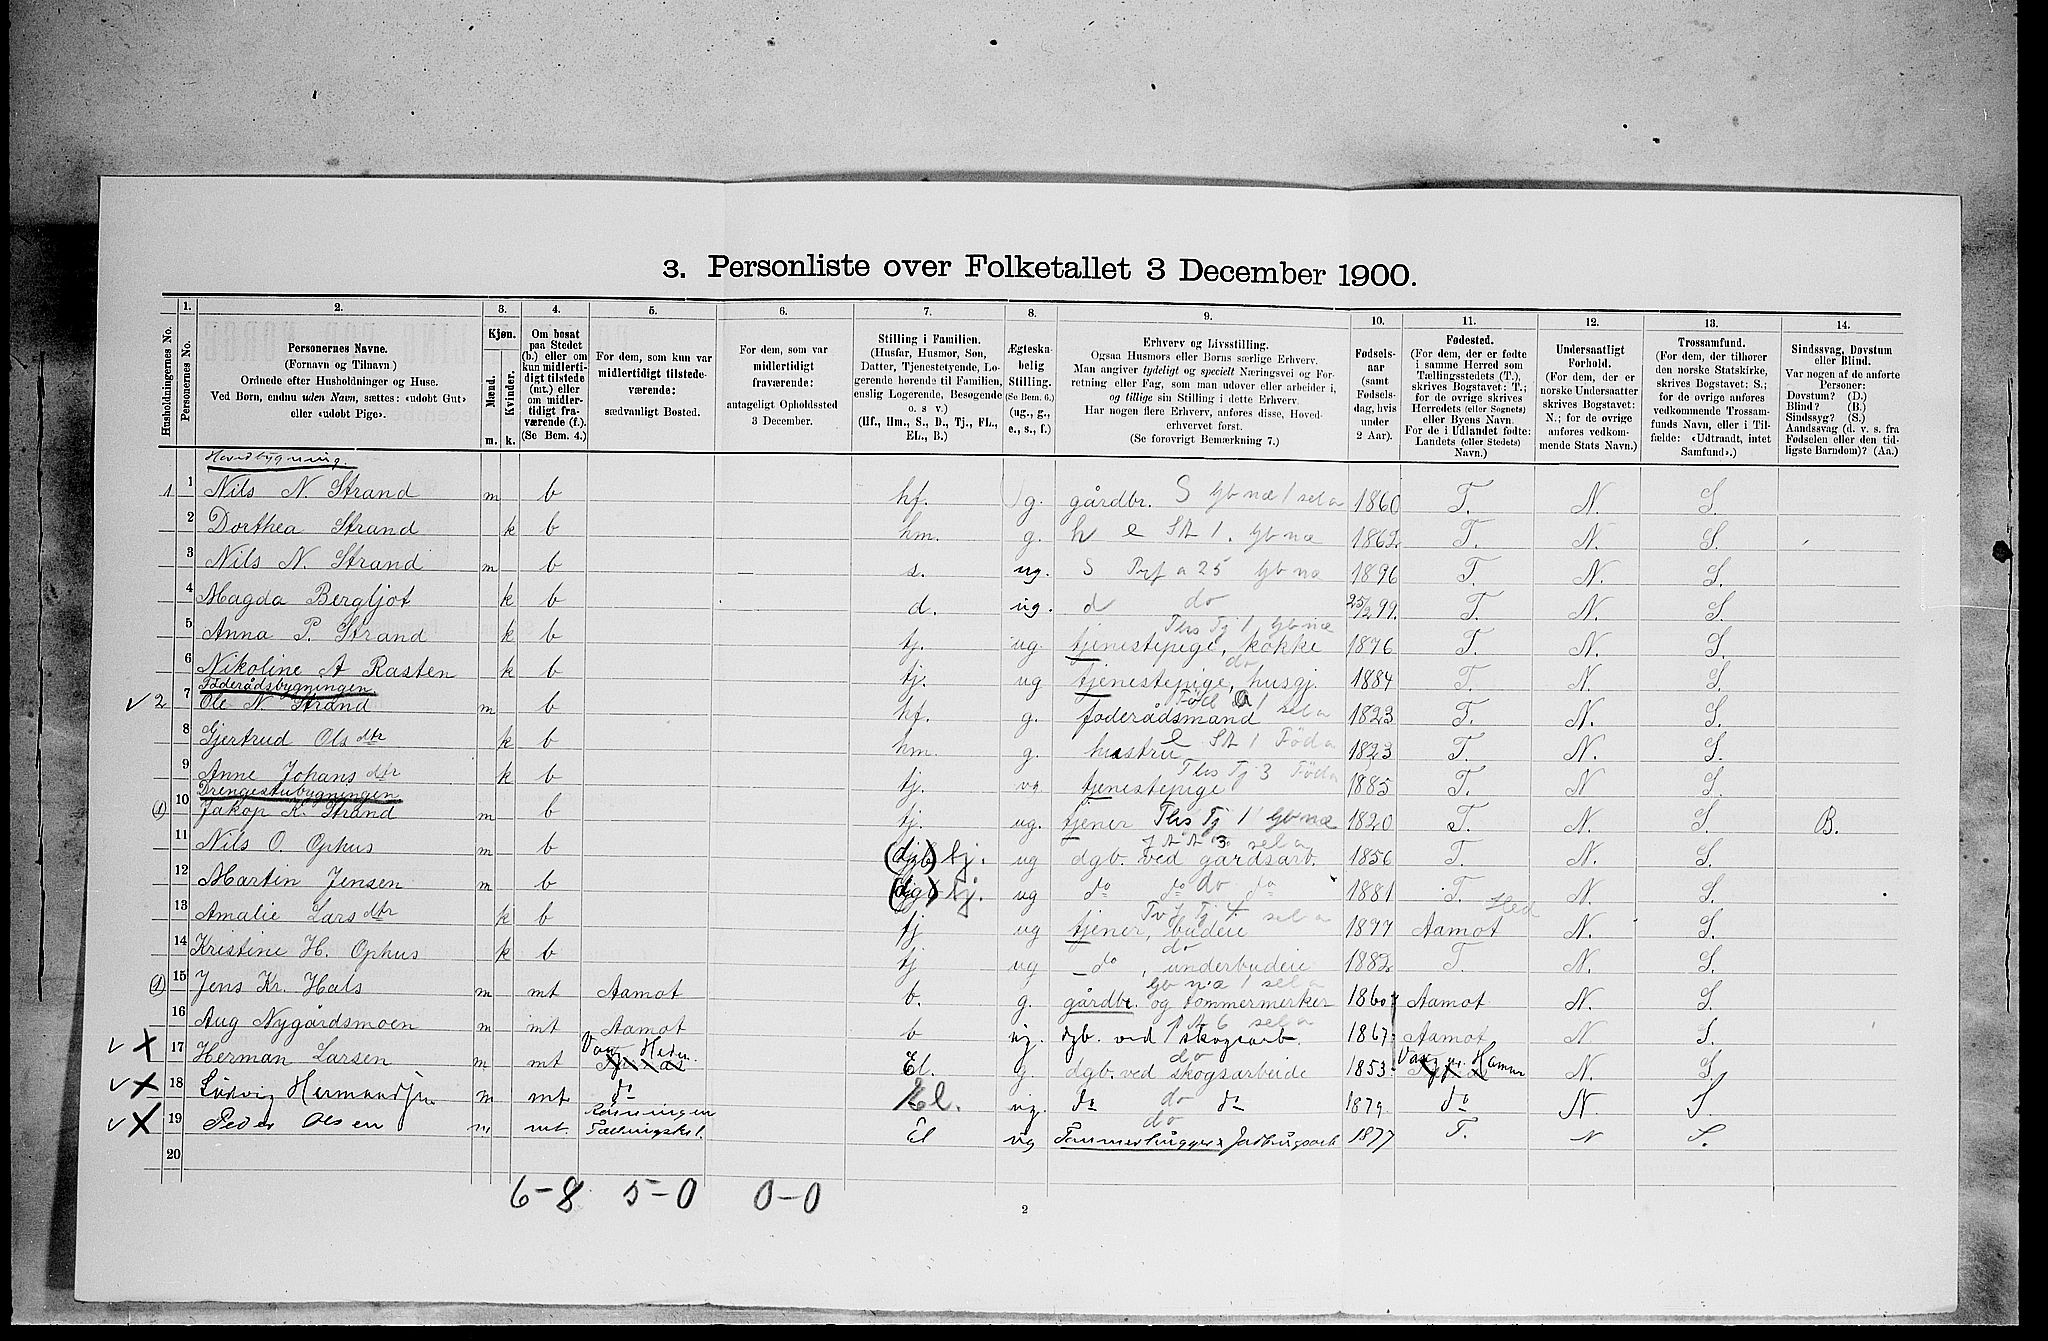 3. Personliste over Folketallet 3 December 1900.
1. 2. 3. 4. 5. 6. 7. 8. 9. 10. 11. 12. 13. 14.
Husholdningernes No.
Personernes No.
Personernes Navne.
(Fornavn og Tilnavn.)
Ordnede efter Husholdninger og Huse.
Ved Børn, endnu uden Navn, sættes: «udøbt Gut»
eller «udøbt Pige».
Kjøn.
Mænd.
Kvinder.
m. k.
Om bosat
paa Stedet
(b.) eller om
kun midlerti-
digt tilstede
(mt.) eller
om midler-
tidigt fra-
værende (f.).
(Se Bem. 4.)
For dem, som kun var
midlertidigt tilstede-
værende:
sædvanligt Bosted.
For dem, som var
midlertidigt
fraværende:
antageligt Opholdssted
3 December.
Stilling i Familien.
(Husfar, Husmor, Søn,
Datter, Tjenestetyende, Lo-
gerende hørende til Familien,
enslig Logerende, Besøgende
o. s v.)
(Hf., Hm., S., D., Tj., FL.,
EL., B.)
Ægteska-
belig
Stilling.
(Se Bem. 6.)
(ug., g.,
e., s., f.)
Erhverv og Livsstilling.
Ogsaa Husmors eller Børns særlige Erhverv.
Man angiver tydeligt og specielt Næringsvei og For-
retning eller Fag, som man udøver eller arbeider i,
og tillige sin Stilling i dette Erhverv.
Har nogen flere Erhverv, anføres disse, Hoved-
erhvervet først.
(Se forøvrigt Bemærkning 7.)
Fødsels-
aar
(samt
Fødsels-
dag, hvis
under
2 Aar).
Fødested.
(For dem, der er fødte
i samme Herred som
Tællingsstedets (T.),
skrives Bogstavet: T.;
for de øvrige skrives
Herredets (eller Sognets)
eller Byens Navn.
For de i Udlandet fødte:
Landets (eller Stedets)
Navn.)
Undersaatligt
Forhold.
(For dem, der er
norske Undersaatter
skrives Bogstavet:
N.; for de øvrige
anføres vedkom-
mende Stats Navn.)
Trossamfund.
(For dem, der tilhører
den norske Statskirke,
skrives Bogstavet: S.;
for de øvrige anføres
vedkommende Trossam-
funds Navn, eller i Til-
fælde: «Udtraadt, intet
Samfund».)
Sindssvag, Døvstum
eller Blind.
Var nogen af de anførte
Personer:
Døvstum? (D.)
Blind? (B.)
Sindssyg? (S.)
Aandssvag (d. v. s. fra
Fødselen eller den tid-
ligste Barndom)? (Aa.)
Hovedbygning.
1 1 Nils N Strand m b hf. g. gårdbr. S Gb næ 1 sel a 1860 T. N. S.
2 Dorthea Strand k b hm. g. h e SA 1. Gb næ 1862 T. N. S.
3 Nils N. Strand m b s. ug. S Prf a 25 Gb næ 1896 T. N. S.
4 Magda Bergljot k b d. ug. d do 25/2 99. T. N. S.
5 Anna P. Strand k b tj. ug. tjenestepige, kokke Ths Tj 1 Gb næ 1876 T. N. S.
6 Nikoline A Rasten k b tj. ug tjenestepige, husgj. do 1884 T. N. S.
Föderådsbygningen
2 7 Ole N Strand m b hf. g. foderådsmand Föd a 1 sel a 1823 T. N. S.
8 Gjertrud Olsdtr k b hm. g. hustru e SA 1 Föd a 1823 T. N. S.
9 Anne Johansdtr k b tj. ug tjenestepige Ths Tj 3 Föd a 1885 T. N S.
Drengestubygningen
(1) 10 Jakop K. Strand m b tj. ug. tjener Ths Tj 1 Gb næ 1820 T. N. S. B.
11 Nils O. Ophus m b (dgb) tj. ug dgb. ved gårdsarb. sel a 1856 T. N. S.
12 Martin Jensen m b (dgb) tj. ug do do do do 1881 T. N. S.
13 Amalie Larsdtr k b tj ug tjener, budeie sel a 1877 Aamot Hed N. S.
14 Kristine H. Ophus k b tj ug do, underbudeie do 1882 T. N. S.
(1) 15 Jens Kr. Hals m mt Aamot b. g. gårdbr. og tømmermerker Gb næ 1 sel a 1860 Aamot N. S.
16 Aug Nygårdsmoen m mt Aamot b ug. dgb. ved skogsarb. sel a 1867 Aamot N S.
17 Herman Larsen m mt Vang Hedm. El. g. dgb. ved skogsarbeide do 1853 Vang pr. Hamar N. S.
18 Ludvig Hermandsen m mt do El. ug. do do do 1879. do N. S.
19 Peder Olsen m mt. El ug Tømmerhugger & Jordbrugsarb do 1877 T. N S.
20
6-8 5-0 0-0
2